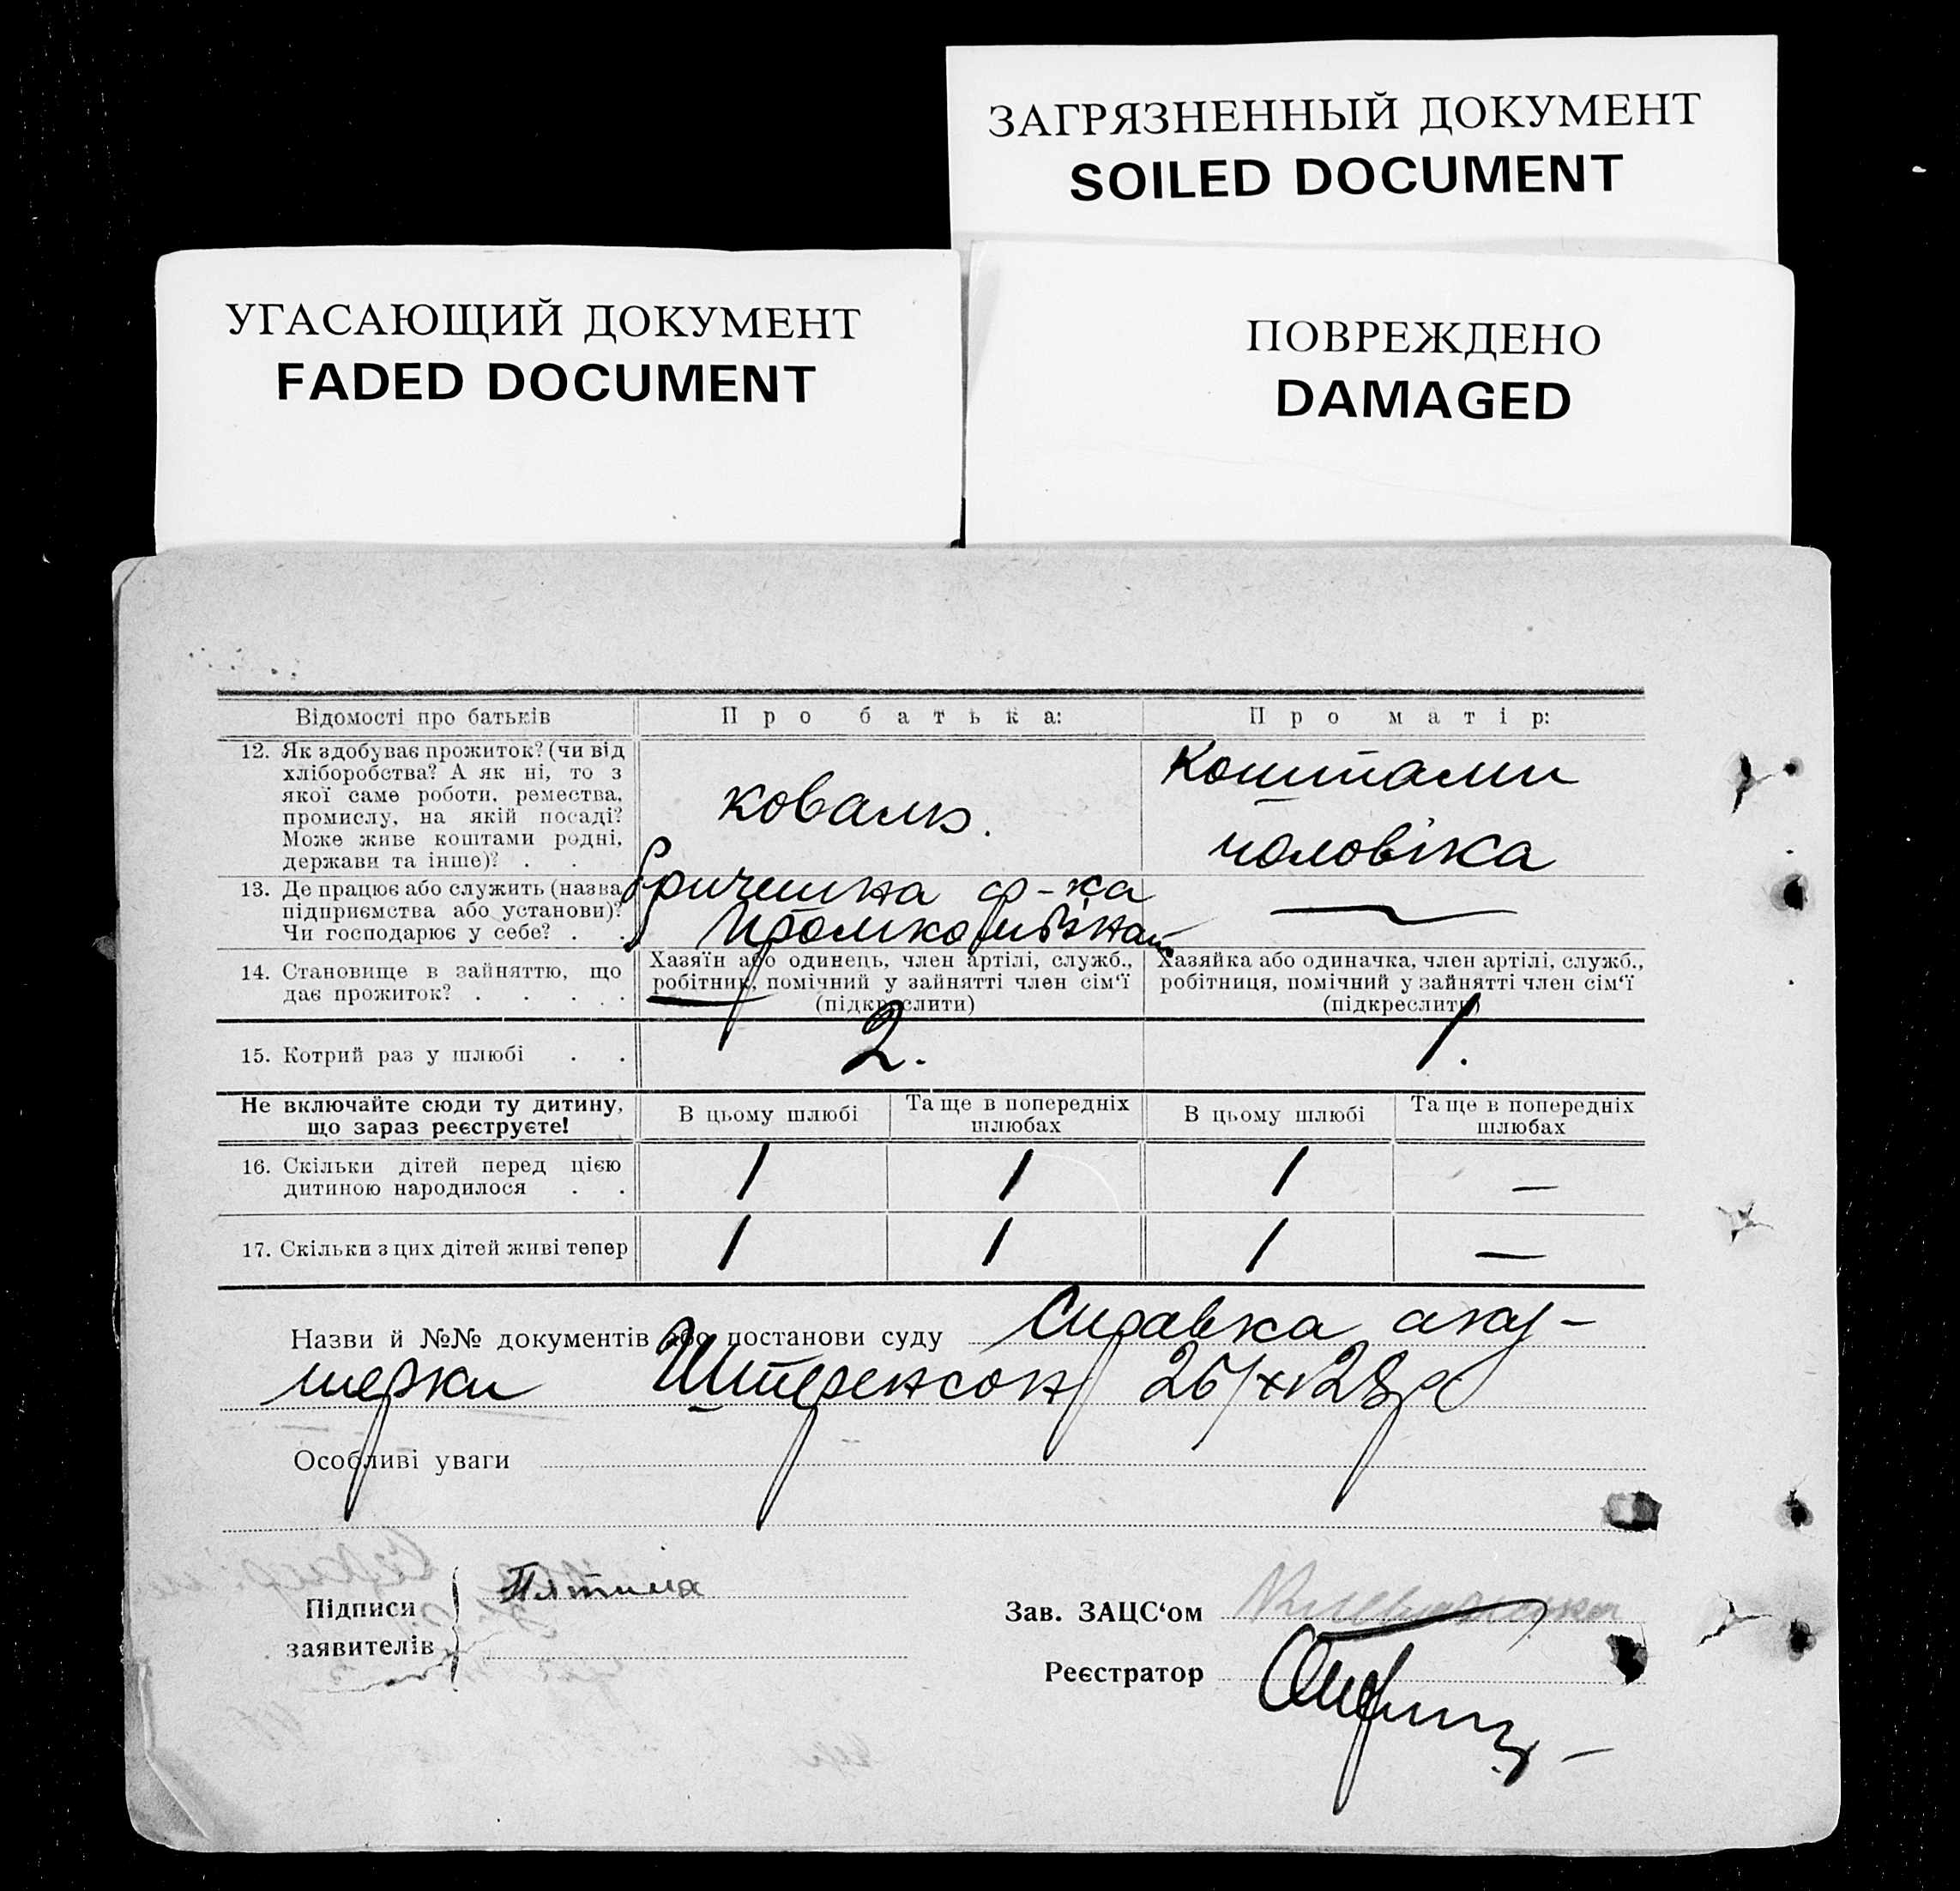 ЗАГРЯЗНЕННЫЙ ДОКУМЕНТ
SOILED DOCUMENT
УГАСАЮЩИЙ ДОКУМЕНТ
FADED DOCUMENT
ПОВРЕЖДЕНО
DAMAGED
Відомості про батьків
Про батька:
Про матір:
12. Як здобуває прожиток? (чи від
хліборобства? А як ні, то з
якої саме роботи, ремества,
промислу, на якій посаді?
Може живе коштами родні,
держави та інше)? . .
коваль.
Коштами
чоловіка
13. Де працює або служить (назва
підприємства або установи)?
Чи господарює у себе? . .
ф-ка
—
14. Становище в зайняттю, що
дає прожиток? . . . . .
Хазяїн або одинець, член артілі, служб.,
робітник, помічний у зайнятті член сім‘ї
(підкреслити)
Хазяйка або одиначка, член артілі, служб.,
робітниця, помічний у зайнятті член сім‘ї
(підкреслити)
15. Котрий раз у шлюбі . .
2.
1.
Не включайте сюди ту дитину,
що зараз реєструєте!
В цьому шлюбі
Та ще в попередніх
шлюбах
В цьому шлюбі
Та ще в попередніх
шлюбах
16. Скільки дітей перед цією
дитиною народилося . .
1
1
1
—
17. Скільки з цих дітей живі тепер
1
1
1
—
Назви й №№ документів або постанови суду Справка аку-
шерки Штеренсон
Особливі уваги
Підписи
заявителів
Зав. ЗАЦС‘ом
Реєстратор